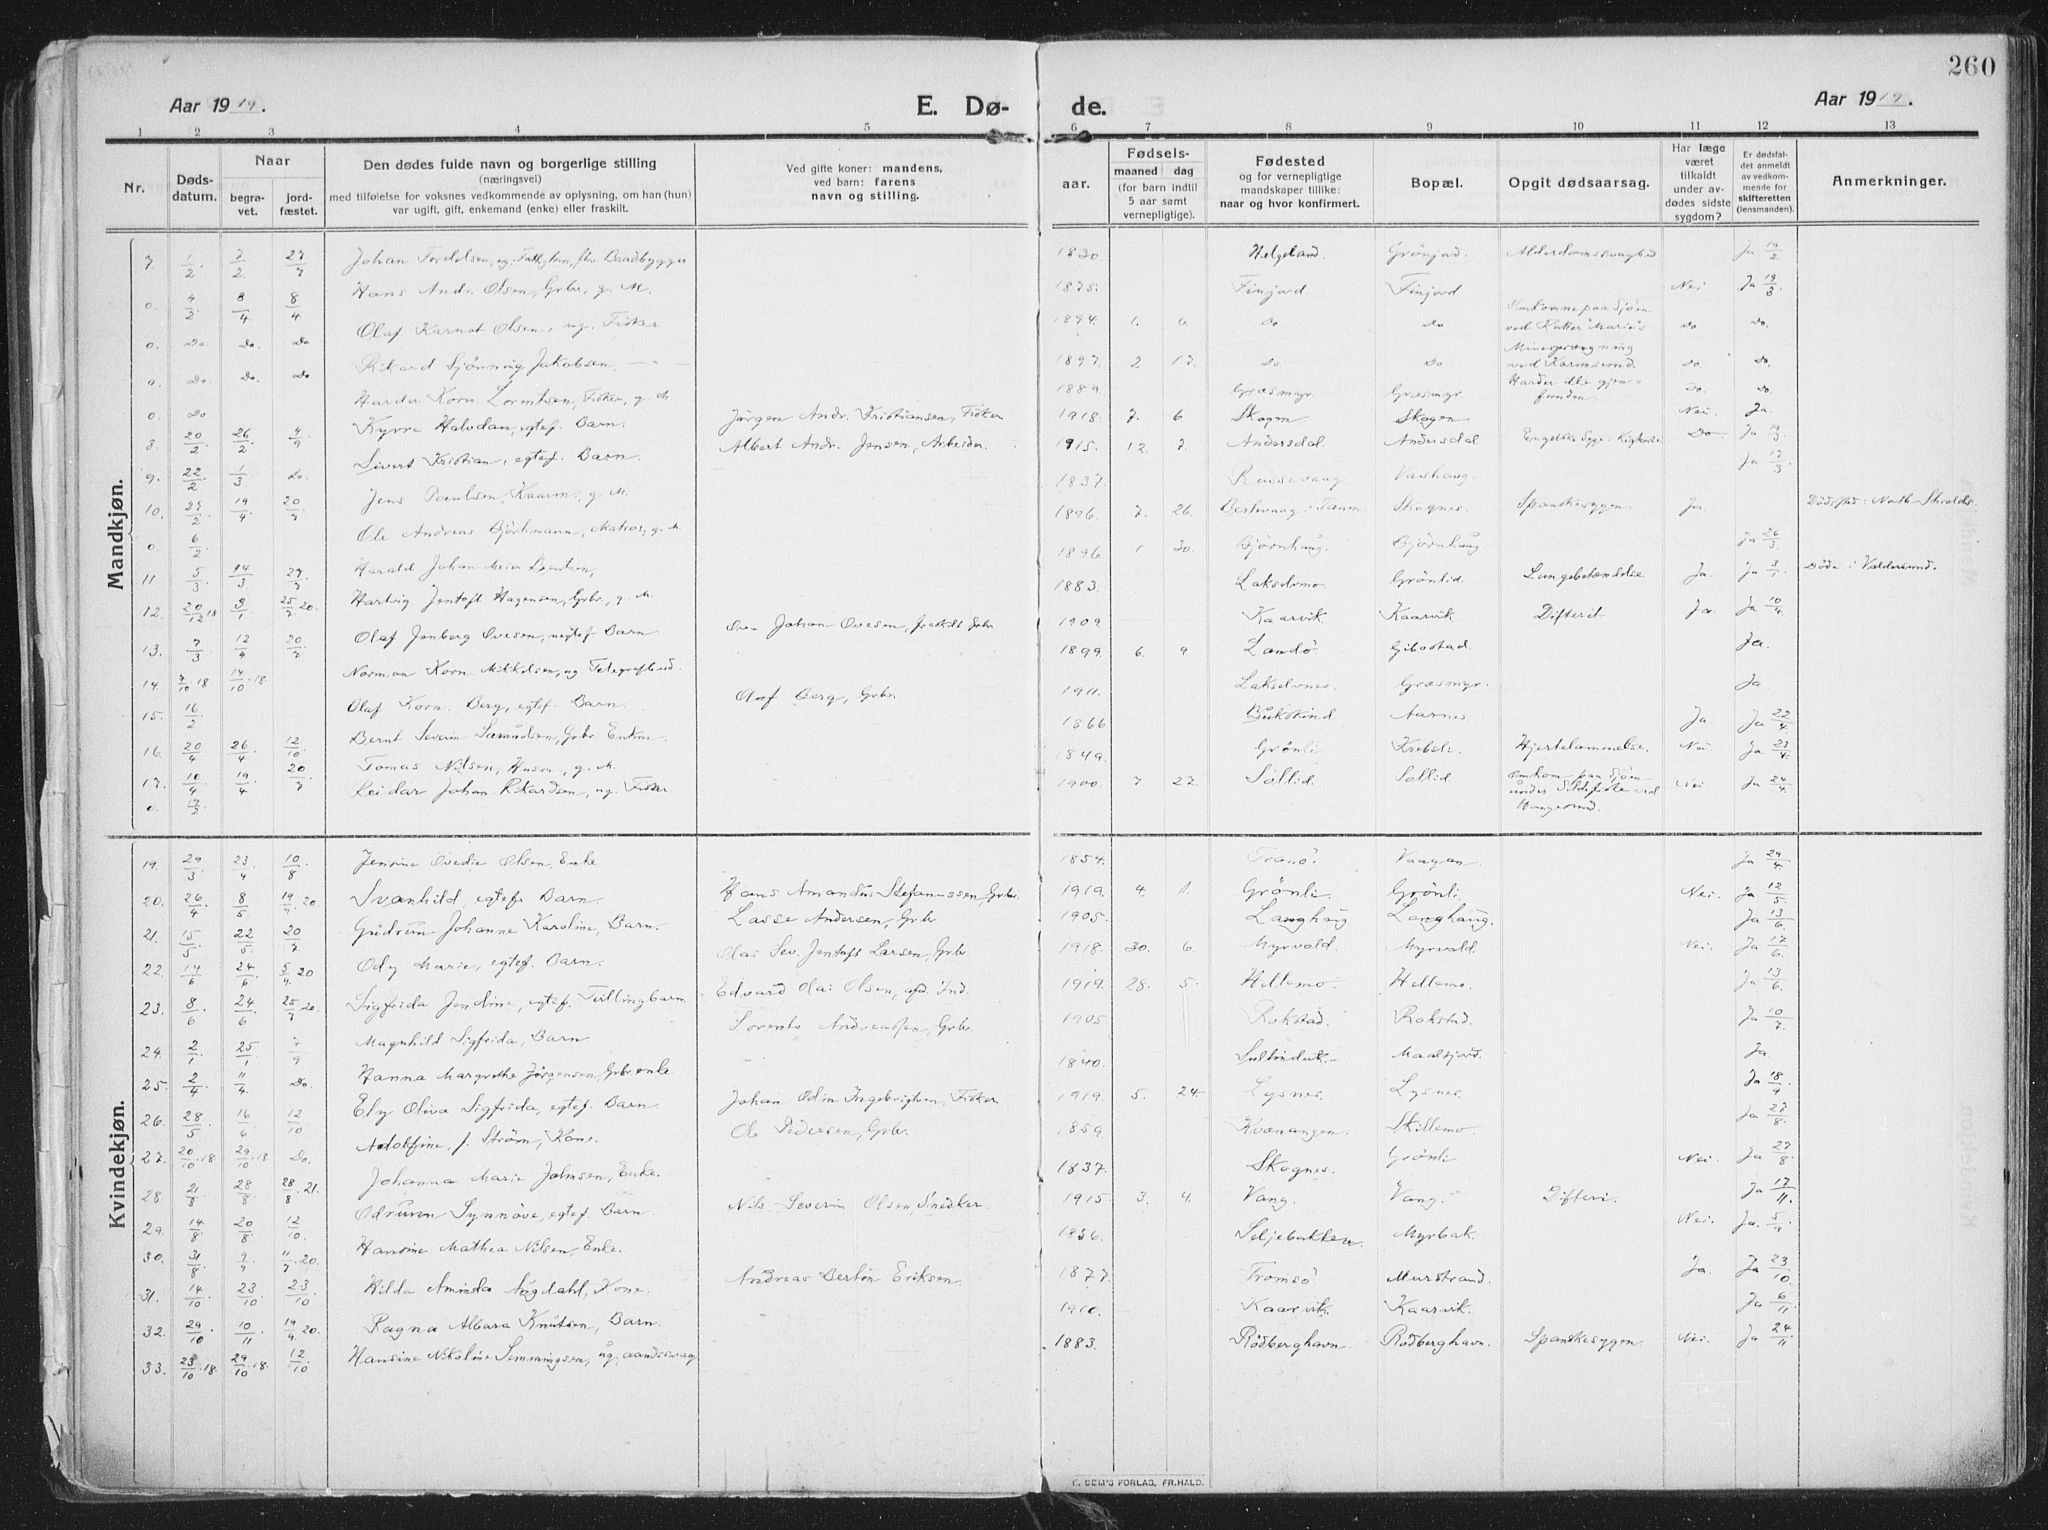 260
Aar 1919. E. Dø- de. Aar 1919.
1 2 3 4 5 6 7 8 9 10 11 12 13
Nr. Døds-datum. Naar begra-vet. jord-fæstet. Den dødes fulde navn og borgerlige stilling (næringsvei) med tilføielse for voksnes vedkommende av oplysning, om han (hun) var ugift, gift, enkemand (enke) eller fraskilt. Ved gifte koner: mandens, ved barn: farens navn og stilling. Fødsels- aar. maaned dag (for barn indtil 5 aar samt vernepligtige). Fødested og for vernepligtige mandskaper tillike: naar og hvor konfirmert. Bopæl. Opgit dødsaarsag. Har læge været tilkaldt under av-dødes sidste sygdom? Er dødsfal-det anmeldt av vedkom-mende for skifteretten (lensmanden). Anmerkninger.
Mandkjøn.
7. 1/2 7/2 27/7 Johan 1830 Helgeland. Alderdomssvaghed Ja 14/2
0. 4/2 8/4 8/4 Hans Andr. Olsen, Grbr, g. M. 1875. Finjord. Finjord Nei Ja 19/3
0. Do. Do. Do Olaf Karnot Olsen, ug. Fisker 1894. 1. 6. Do Do Omkomne paa Sjøen ved Kutter "Marie"s do Do.
0. Do. Do. Do Rikard Sjønning Jakobsen, — " — 1897. 2 17. Do. Do Minesprængning ved Karmsund. Do. Do.
0. Do Harder Korn. Lorentsen, Fisker, g. M. 1889. Græsmyr. Græsmyr. Harder ikke gjenfunden. Do. Do.
8. 20/2 26/2 4/9 Kyrre Halvdan, egtef. Barn. Jørgen Andr. Kristiansen, Fisker 1918. 7. 6 Skogen Skogen Nei. Ja.
9. 22/2 1/3 Do. Sivert Kristian, egtef. Barn. Albert Andr. Jensen, Arbeider 1915. 12. 7. Andersdal. Andersdal Engelske Syge. Do Ja 19/3
10. 27/2 19/4 20/7 Jens Paulsen, Kaarm., g. M. 1837. Russevaag Ja 17/3
0. 6/2 Ole Andreas Björkmann, Matros, g. M. 1896. 7. 26. Berlevaag i Tanen Skognes. Spanskesygen. Ja. Dødssted: North Shields.
11 5/3 14/3 27/7 Harald Johan Meier Berntsen, 1896. 1. 30. Bjørnhaug. Bjørnhaug Ja 26/3
12. 20/12 18 3/1 25/7 20. Hartvig Jentoft Hagensen, Grbr., g. M. 1883. Lakselvmo. Grønlid. Lungebetændelse Ja. Ja 3/1 Døde i Valdersund.
13. 7/3 12/4 20/7 Olaf Jenberg Ovesen, uegtef Barn. Ove Johan Ovesen, fraskilt Grbr 1909. Kaarvik Kaarvik Difterit Ja. Ja 10/4
14. 7/10 18 14/10 18. Norman Korn. Mikkelsen, ug. Telegrafbud. 1899. 6. 9 Landö. Gibostad. Ja.
15. 16/2 Olaf Korn. Berg, egtef. Barn. Olaf Berg, Grbr. 1911. Lakselvnes. Græsmyr. Ja
16. 20/4 26/4 12/10 Bernt Severin Samuelsen, Grbr. Enkm. 1866 Bukskind Aarnes Ja. Ja 22/4.
17. 10/4 19/4 20/7 Tomas Nilsen, Husm., g. M. 1849. Grönli Krebsli. Hjertelammelse. Nei. Ja 23/4.
0. 17/2 Reidar Johan Rikardsen, ug. Fisker. 1900. 7. 27. Sollid Sollid Omkom paa Sjøen under Sildefiske ved Haugesund. Nei Ja 24/4.
Kvindekjøn.
19. 29/3 23/4 10/8 Jensine Ovedie Olsen, Enke 1854. Tranö. Vaagan. Ja 29/4
20. 26/4 8/5. 19/9. 20. Svanhild, egtef. Barn. Hans Amandus Stefanussen, Grbr. 1919. 4. 1. Grönli Grönli. Nei. Ja 12/5
21. 15/5 22/5. 20/7 Gudrun Johanne Karoline, Barn. Lasse Andersen, Grbr. 1905. Langhaug Langhaug. Ja 13/6.
22. 14/6 24/6. 5/9. 20 Ody Marie, egtef. Barn. Olai Sev. Jentoft Larsen, Grbr 1918. 30. 6. Myrvold. Myrvold. Nei Ja 17/6.
23. 8/6 24/6. 25/7 20. Sigfrida Jendine, egtef. Tvillingbarn. Edvard Olai Olsen, afd. Ind. 1919. 28. 5. Hellemo. Hellemo. Ja 13/6.
24. 2/1 25/1 7/9 Magnhild Sigfrida, Barn Sorents Andreassen, Grbr. 1905. Rokstad. Rokstad. Ja 10/7.
25. 2/4 11/4. Do. Hanna Margrethe Jørgensen, Grbr.enke. 1840. Maalsjord. Ja
26. 28/5 16/6 12/10 Ely Oliva Sigfrida, egtef. Barn. Johan Odin Ingebrigtsen, Fisker 1919. 5. 24. Lysnes. Lysnes. Ja 18/9
27. 20/10. 18. 29/10. 18. Do. Adolfine, f. Ström, Kone. Ole Pedersen, Grbr. 1859. Kvænangen. Skillemo. Ja 27/8.
28. 21/8 28/8 28/8. 21. Johanna Marie Johnsen, Enke. 1837. Skognes. Grönli Nei. Ja 27/8.
29. 14/8 20/8 12/10. Odrunn Synnöve, egtef. Barn. Nils Severin Olsen, Snedker. 1915. 3. 4. Vang. Vang. Difteri. Ja 17/11.
30. 31/8 9/9 11/7. 20. Hansine Mathea Nilsen, Enke. 1856. Seljebakken. Myrbak. Nei. Ja. 5/9
31. 14/10 23/10 23/10 Hilda Aminda Aagdahl, Kone. Andreas Bertin Eriksen. 1877. Tromsö Murstrand. Ja. Ja 23/10.
32. 29/10 10/11 19/9 20. Ragna Albara Knutsen, Barn. 1910. Kaarvik. Kaarvik. Ja 6/11
33. 23/10 18. 29/10 18. 12/10 Hansine Nikoline Semmingsen, ug, aandssvag 1883. Rödberghavn Rödberghavn. Spanskesygen Nei. Ja 24/11
E. SEM'S FORLAG, FR.HALD.